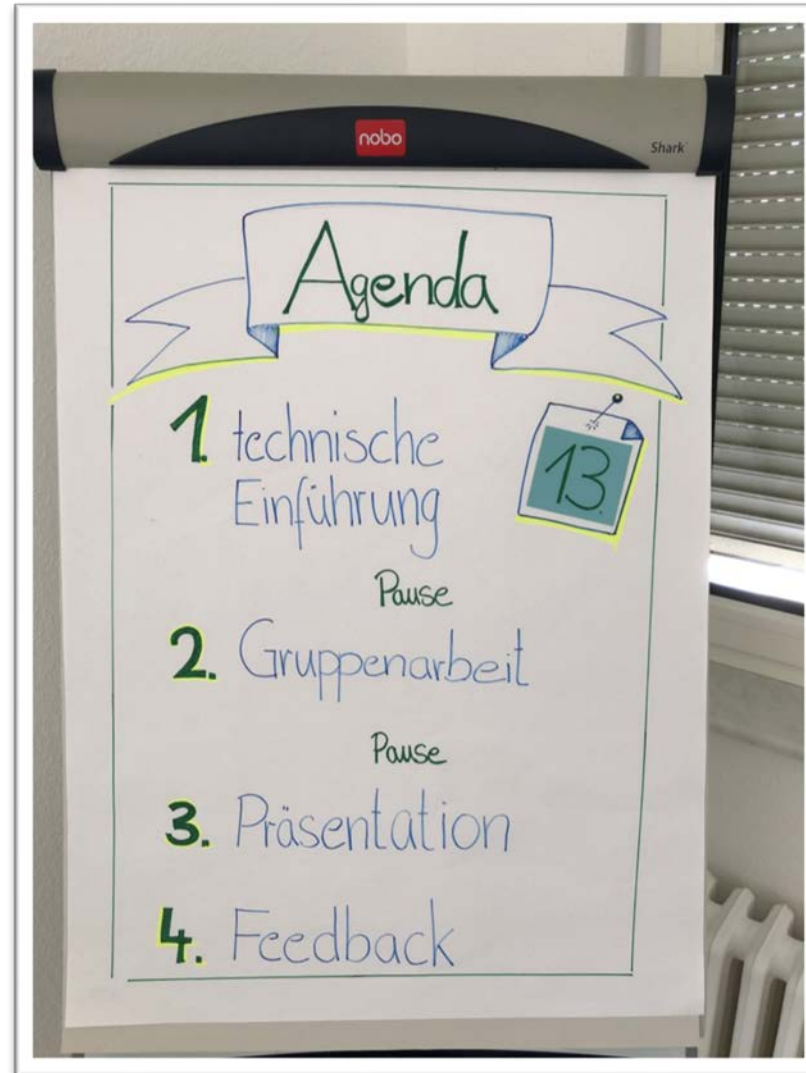 nobo
Shark
Agenda
1. technische
Einführung
13.
Pause
2. Gruppenarbeit
Pause
3. Präsentation
4. Feedback